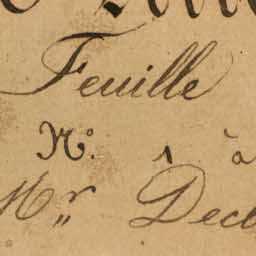 Feuille
N° 1 à
Mr Decl